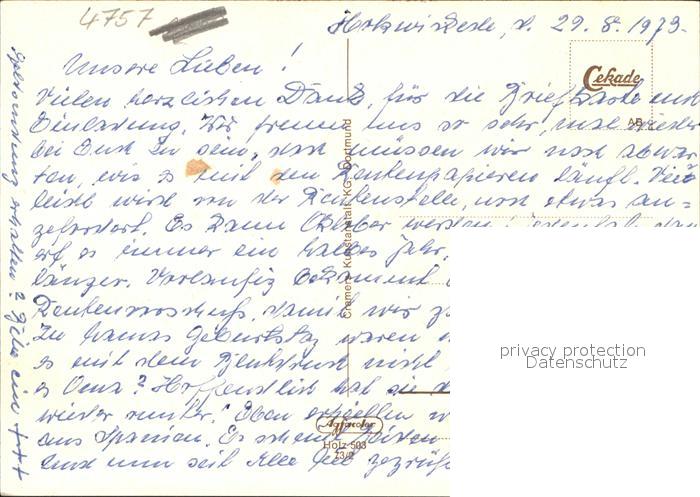 4757
Holzwickede, d. 29. 8. 1973.
Unsere Lieben!
Cekade
Vielen herzlichen Dank, für die Briefkarte und
Einladung. Wir freuen uns so sehr, mal wieder
AB
bei Euch zu sein, doch müssen wir noch abwar-
ten, wie es mit den Rentenpapieren läuft. Viel
leicht wird von der Rentenstelle, noch etwas an=
gefordert. Es kann Oktober werden,
es immer ein halbes Jahr,
länger. Vorläufig bekommt
Rentenvorschuß, damit wir
Zu Mamas Geburtstag waren
es mit dem Blutdruck nicht
es Oma? Hoffentlich hat sie
wieder runter! Eben erhielten
aus Spanien. Es scheint
und nun seit Alle
Geldsendung erhalten? Gebe ein +++
Cramers Kunstanstalt KG, Dortmund
Agfacolor
Holz 503
73/2
privacy protection
Datenschutz